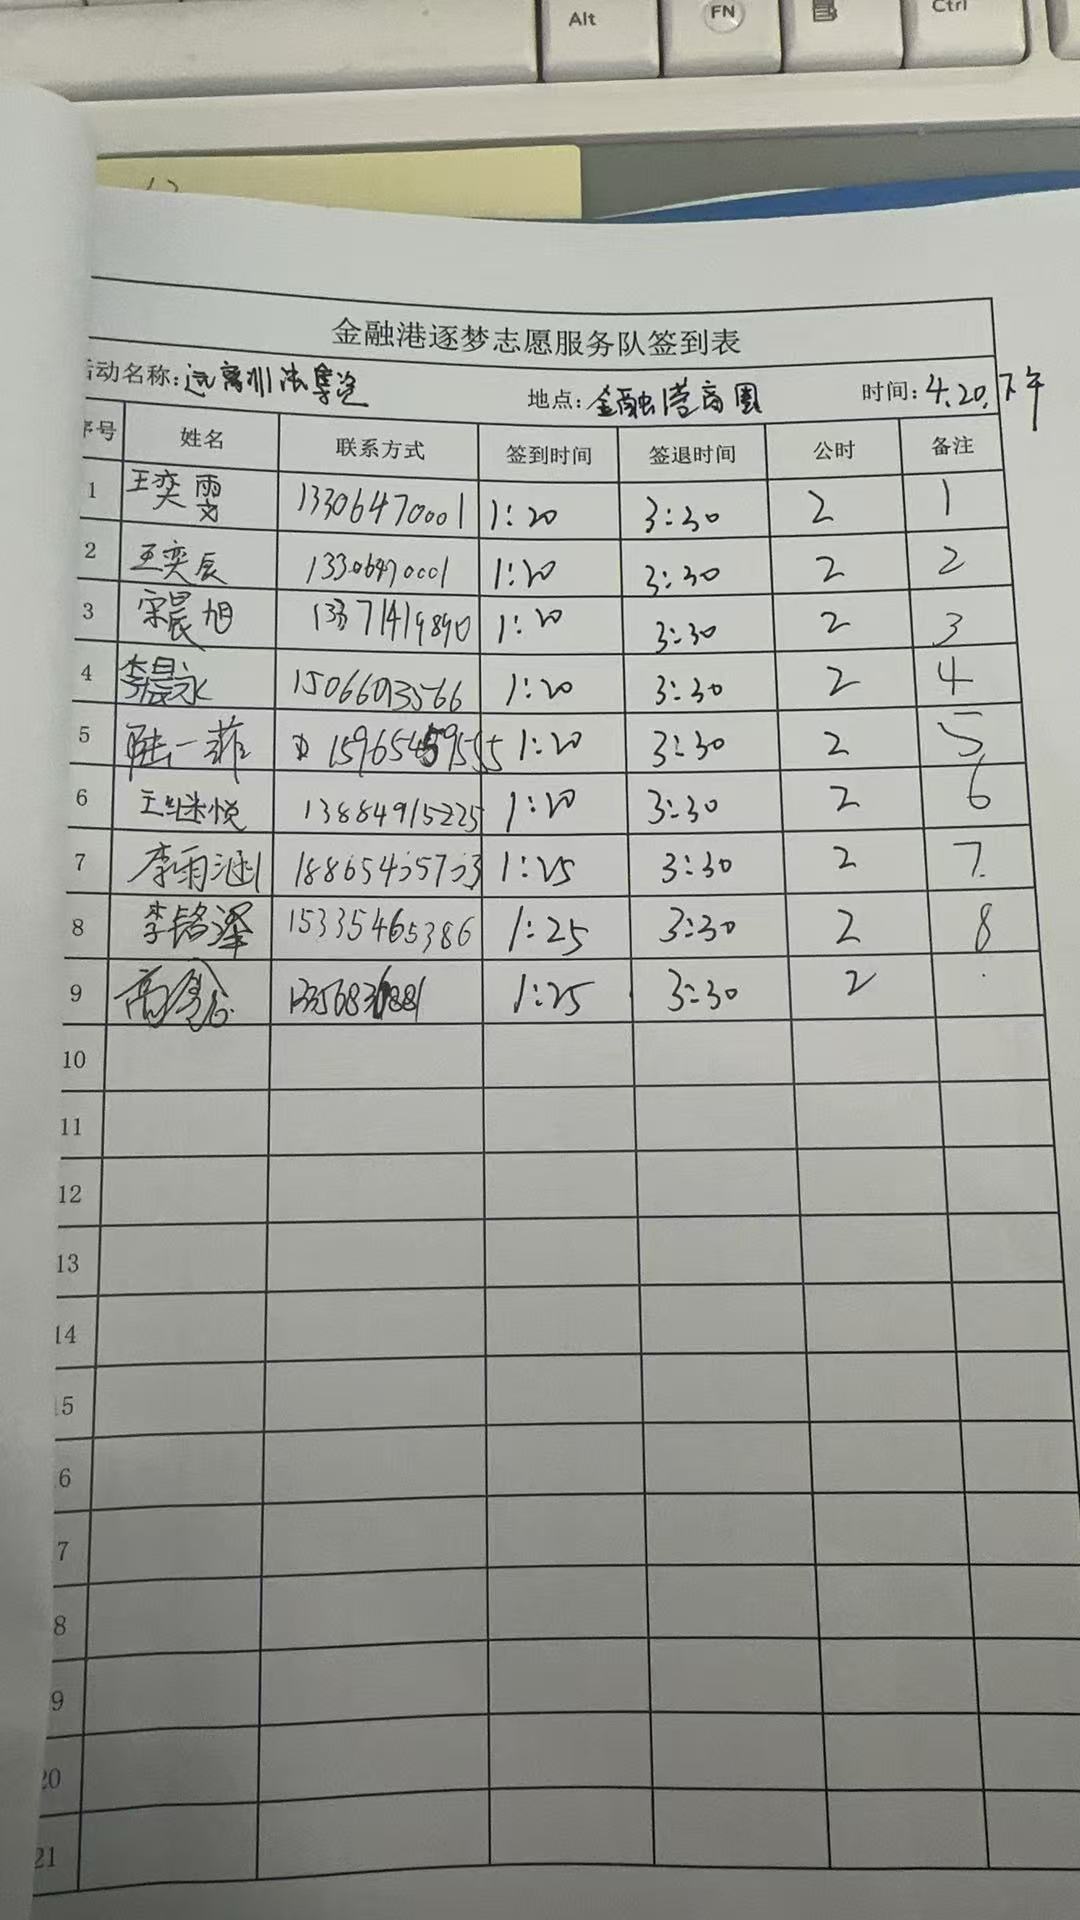 Alt FN Ctrl
金融港逐梦志愿服务队签到表
活动名称:远离非法集资 地点:金融港商圈 时间:4.20.下午
序号 姓名 联系方式 签到时间 签退时间 公时 备注
1 王奕雯 13306470001 1:20 3:30 2 1
2 王奕辰 13306470001 1:20 3:30 2 2
3 宋晨旭 13371419890 1:20 3:30 2 3
4 李晨永 15066093566 1:20 3:30 2 4
5 陆一菲 1:20 3:30 2 5
6 王继悦 13884915225 1:20 3:30 2 6
7 李雨涵 1:25 3:30 2 7.
8 李铭泽 15335465386 1:25 3:30 2 8
9 1:25 3:30 2
10
11
12
13
14
15
6
7
8
9
20
21